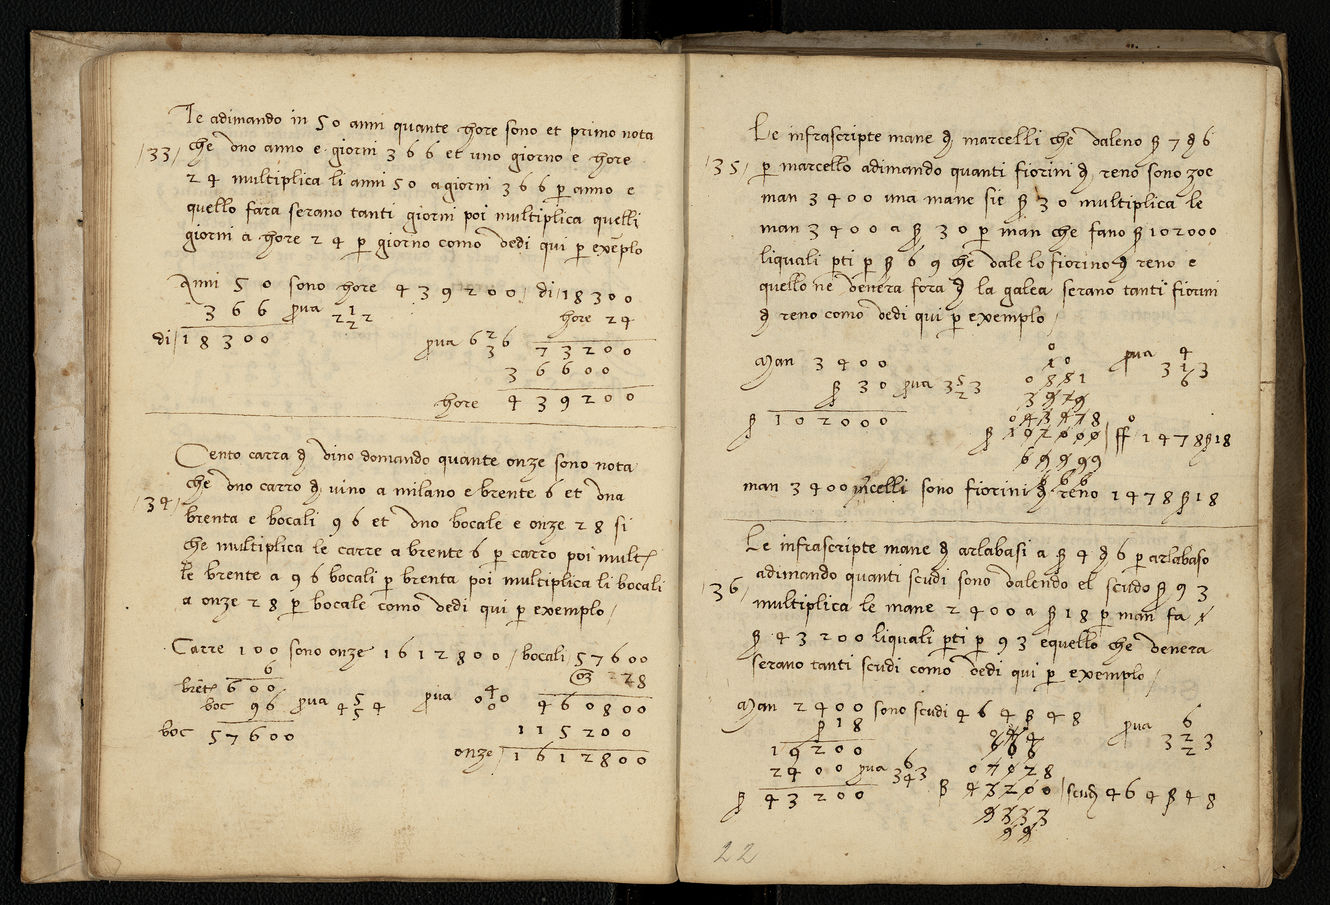 Te adimando in 50 anni quante hore sono et primo nota
/33/ che uno anno e giorni 366 et uno giorno e hore
24 multiplica li anni 50 a giorni 366 p anno e
quello fara serano tanti giorni poi multiplica quelli
giorni a hore 24 p giorno como vedi qui p exeplo
Anni 50 sono hore 439200 / di / 18300
366 pva 2 1 2 2 hore 24
di / 18300 pva 6 2 3 6 73200
36600
hore 439200
Cento carra d vino domando quante onze sono nota
che uno carro d vino a milano e brente 6 et una
/34/ brenta e bocali 96 et uno bocale e onze 28 si
che multiplica le carre a brente 6 p carro poi mult
le brente a 96 bocali p brenta poi multiplica li bocali
a onze 28 p bocale como vedi qui p exemplo /
Carre 100 sono onze 1612800 / bocali 57600
6 oz 28
bret 600
boc 96 pva 4 5 5 4 pva 0 4 0 0 460800
boc 57600 115200
onze / 1612800
Le infrascripte mane d marcelli che valeno ß 7 d 6
/35/ p marcello adimando quanti fiorini d reno sono zoe
man 3400 una mane sie ß 30 multiplica le
man 3400 a ß 30 p man che fano ß 102000
liquali pti p ß 69 che vale lo fiorino d reno e
quello ne venera fora d la galea serano tanti fiorini
d reno como vedi qui p exemplo /
0
Man 3400 10 pva 4
ß 30 pva 3 5 2 3 0881 3 1 3
3979 6
ß 102000 043478 0
ß 102000 / ff 1478 ß 18
69999
66
man 3400 mcelli sono fiorini d reno 1478 ß 18
Le infrascripte mane d arlabasi a ß 4 d 6 p arlabaso
/36/ adimando quanti scudi sono valendo el scudo ß 93
multiplica le mane 2400 a ß 18 p man fa
ß 43200 liquali pti p 93 e quello che venera
serano tanti scudi como vedi qui p exemplo /
Man 2400 sono scudi 464 ß 48
ß 18 pva 6
19200 3 2 3
2400 pva 3 6 4 3 07028 2
ß 43200 ß 43200 / scud 464 ß 48
9333
99
22